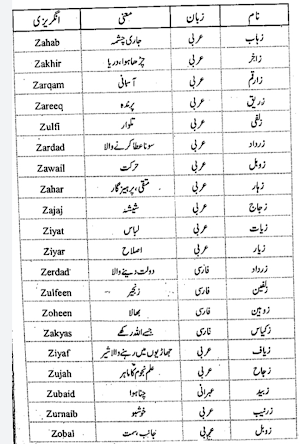 نام زبان معنی انگریزی
زہاب عربی جاری چشمہ Zahab
زاخر عربی چڑھا ہوا، دریا Zakhir
زارقم عربی آسمانی Zarqam
زریق عربی پرندہ Zareeq
زلفی عربی تلوار Zulfi
زرداد عربی سونا عطا کرنے والا Zardad
زویل عربی حرکت Zawail
زہار عربی متقی، پرہیز گار Zahar
زجاج عربی شیشہ Zajaj
زیات عربی لباس Ziyat
زیار عربی اصلاح Ziyar
زرداد فارسی دولت دینے والا Zerdad
زلفین فارسی زنجیر Zulfeen
زوہین فارسی بھالا Zoheen
زکیاس فارسی جسے اللہ رکھے Zakyas
زیاف عربی جھاڑیوں میں رہنے والا شیر Ziyaf
زجاح عربی علم نجوم کا ماہر Zujah
زبید عبرانی چنا ہوا Zubaid
زرنیب عربی خوشبو Zurnaib
زوبل عربی جانب، سمت Zobal